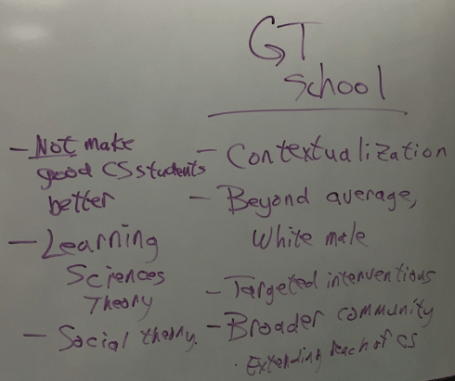 GT
School
- Not make
good CS students
better
- Learning
Sciences
Theory
- Social theory.
- Contextualization
- Beyond average,
White male
- Targeted interventions
- Broader community
· Extending reach of CS